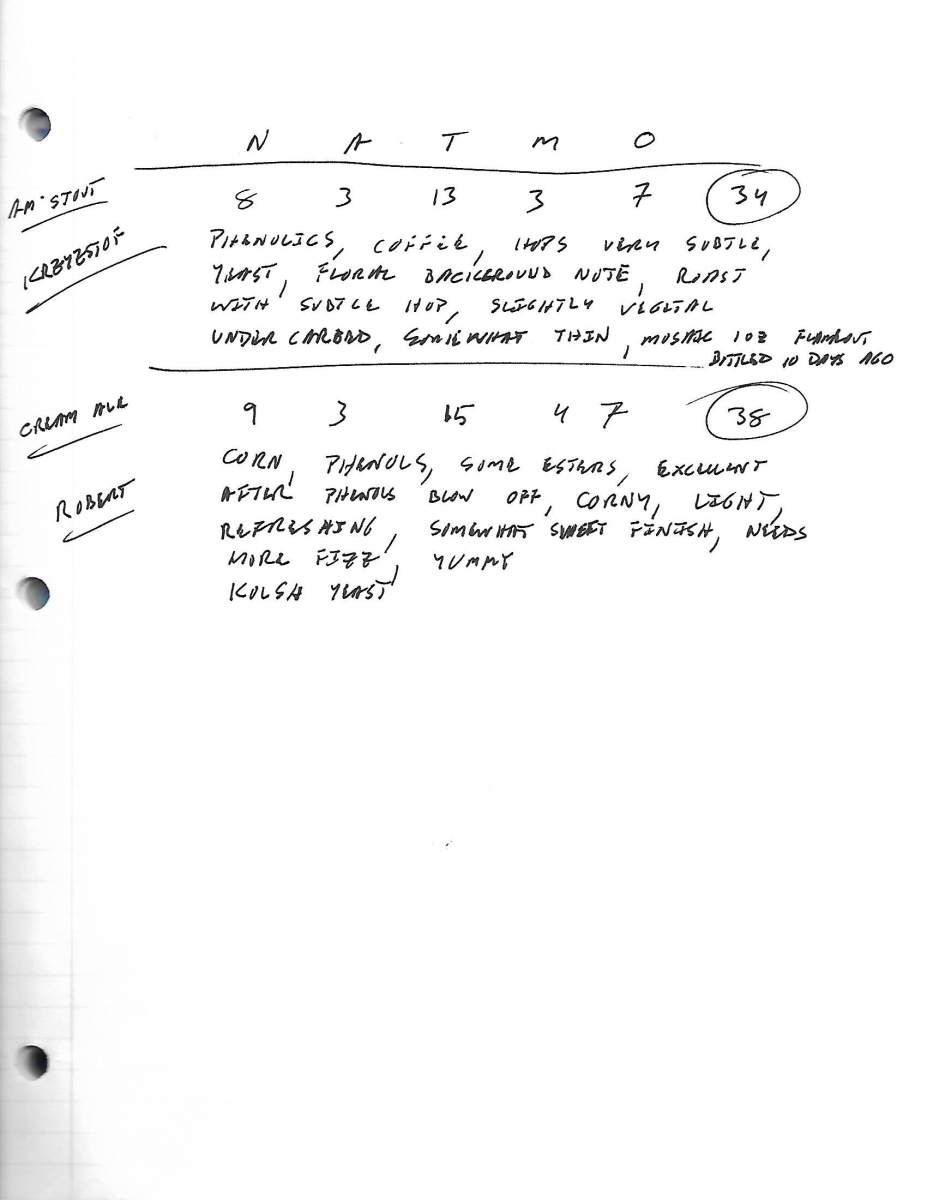 N A T M O
AM. STOUT 8 3 13 3 7 34
KRZYZSTOF PHENOLICS, COFFEE, HOPS VERY SUBTLE,
YEAST, FLORAL BACKGROUND NOTE, ROAST
WITH SUBTLE HOP, SLIGHTLY VEGETAL
UNDER CARBED, SOMEWHAT THIN, MOSAIC 1 OZ FLAMEOUT
BOTTLED 10 DAYS AGO
CREAM ALE 9 3 15 4 7 38
CORN, PHENOLS, SOME ESTERS, EXCELLENT
ROBERT AFTER PHENOLS BLOW OFF, CORNY, LIGHT,
REFRESHING, SOMEWHAT SWEET FINISH, NEEDS
MORE FIZZ, YUMMY
KOLSH YEAST